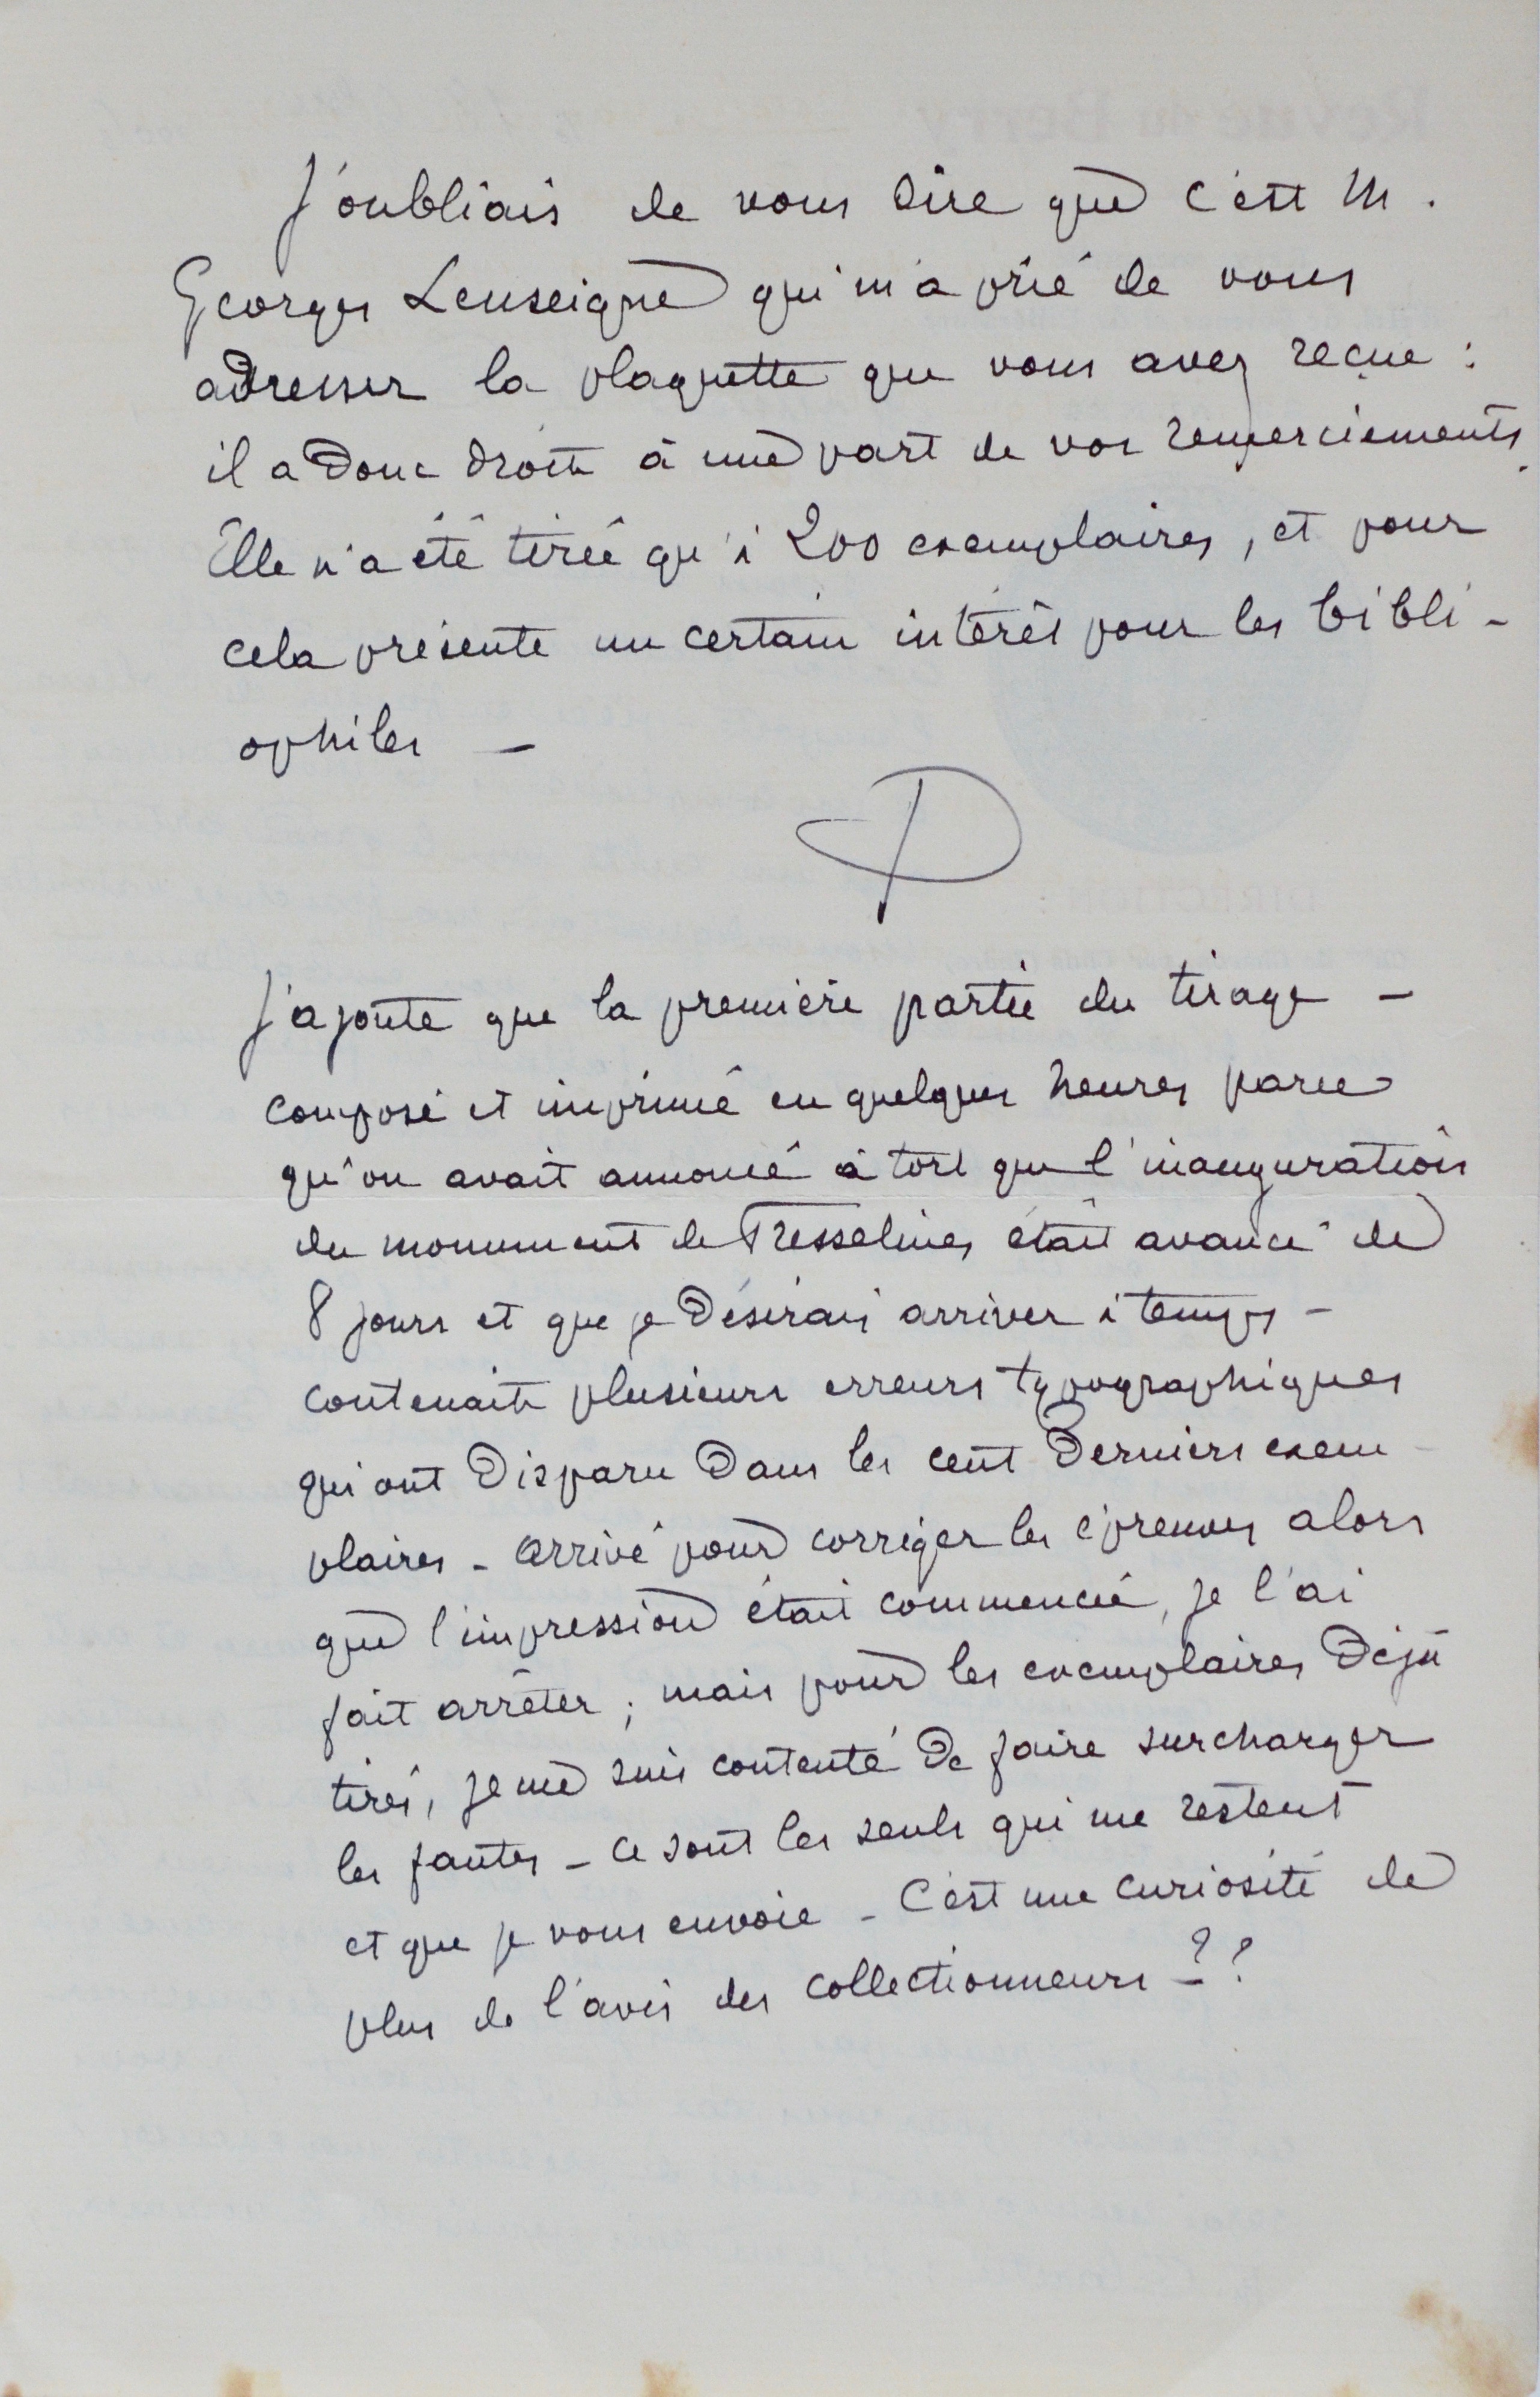 J'oubliais de vous dire que c'est M.
Georges Lenseigne qui m'a prié de vous
adresser la plaquette que vous avez reçue :
il a donc droit à une part de vos remerciements.
Elle n'a été tirée qu'à 200 exemplaires, et pour
cela présente un certain intérêt pour les bibli-
ophiles —
D
J'ajoute que la première partie du tirage —
composé et imprimé en quelques heures parce
qu'on avait annoncé à tort que l'inauguration
du monument de Fresselines était avancé de
8 jours et que je désirais arriver à temps —
contenait plusieurs erreurs typographiques
qui ont disparu dans les cent derniers exem-
plaires - Arrivé pour corriger les épreuves alors
que l'impression était commencée, je l'ai
fait arrêter ; mais pour les exemplaires déjà
tirés, je me suis contenté de faire surcharger
les fautes - ce sont les seuls qui me restent
et que je vous envoie - C'est une curiosité de
plus de l'avis des collectionneurs - ? ?